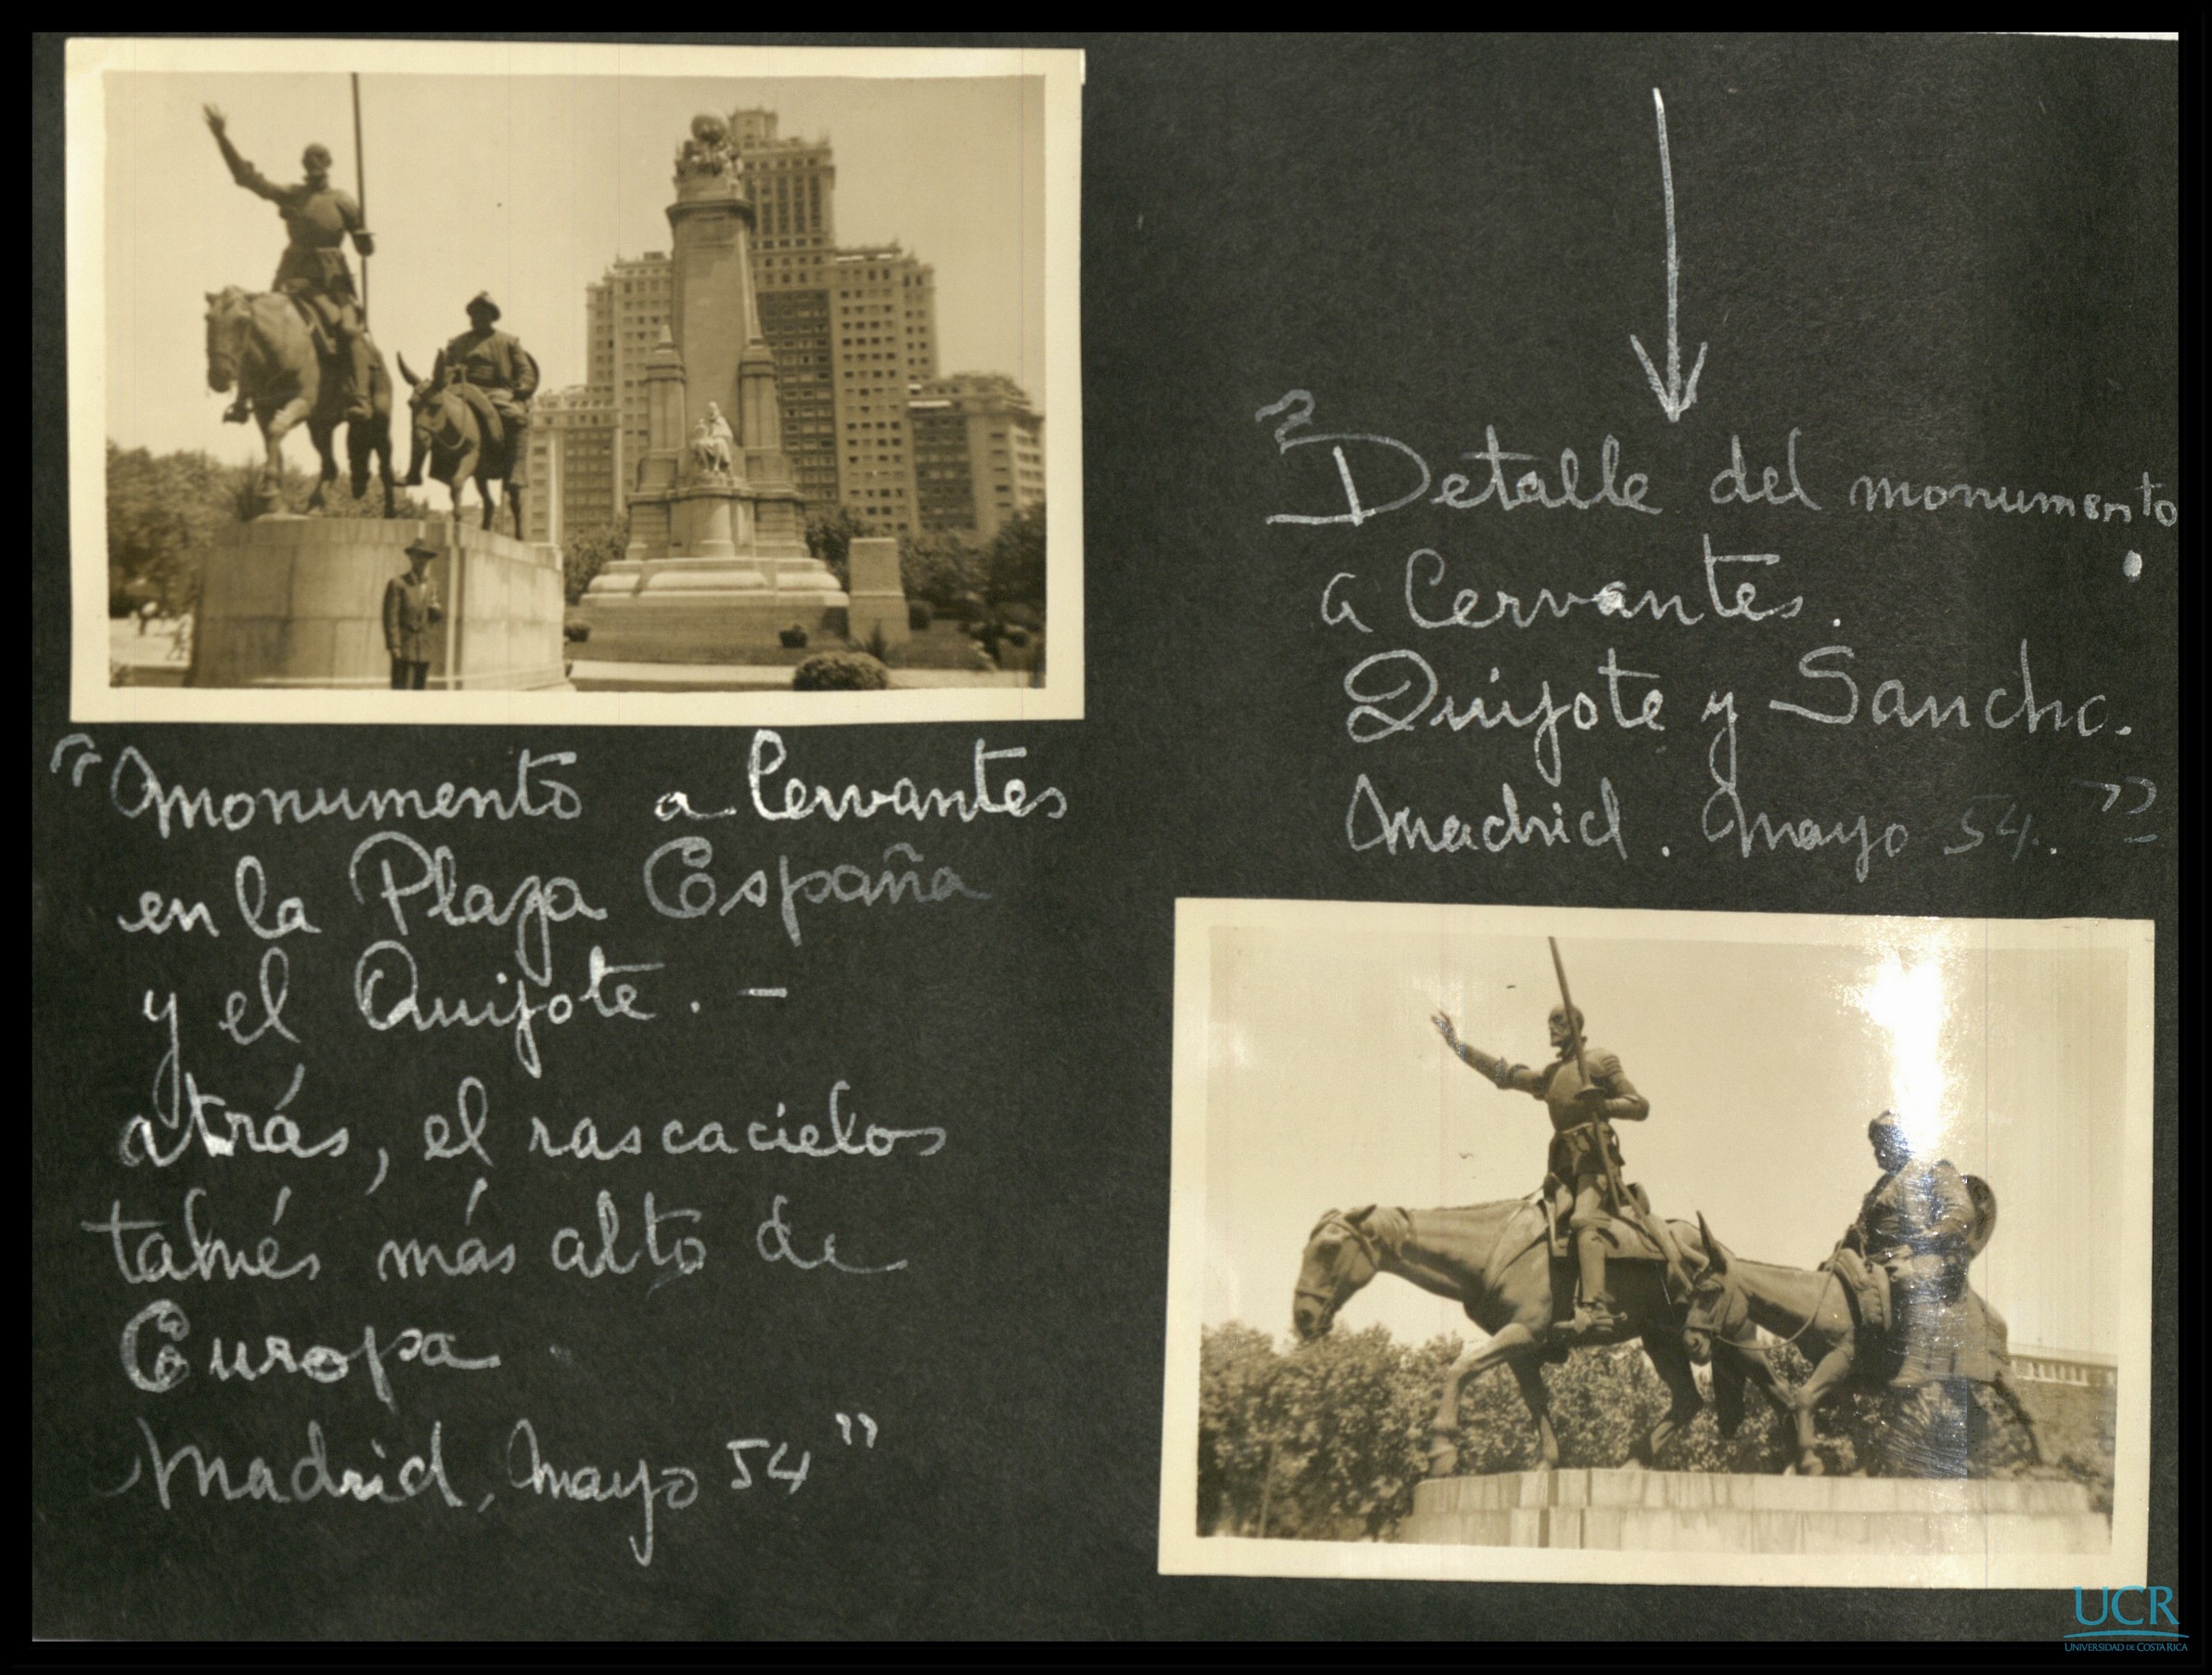 "Monumento a Cervantes
en la Plaza España
y el Quijote. -
atrás, el rascacielos
talvés más alto de
Europa
Madrid, Mayo 54"
"Detalle del monumento
a Cervantes.
Quijote y Sancho.
Madrid. Mayo 54."
UCR
UNIVERSIDAD DE COSTA RICA